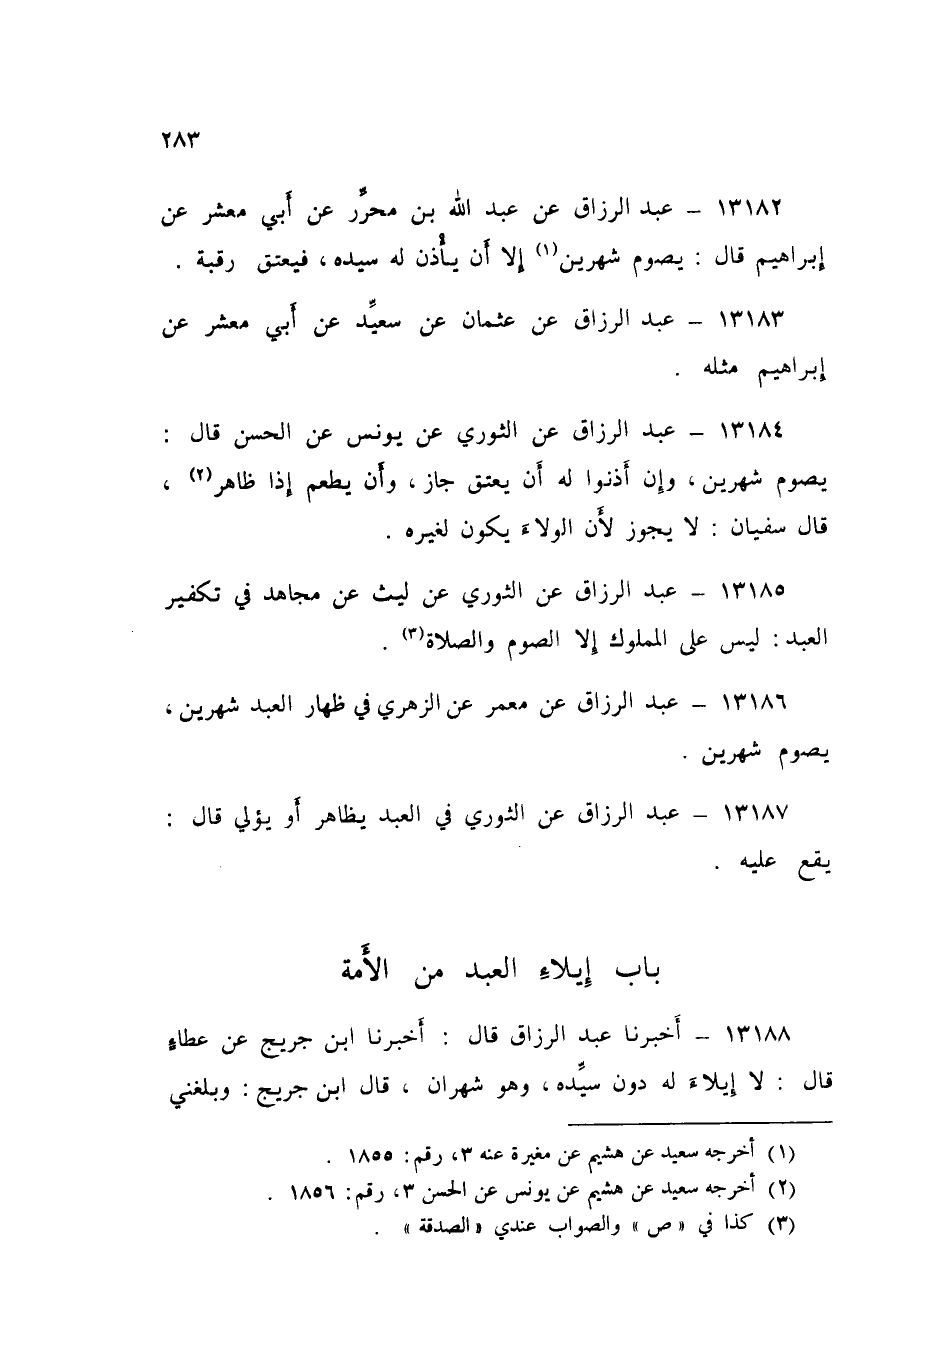 ٢٨٣
١٣١٨٢ – عبد الرزاق عن عبد الله بن محرَّر عن أَبي معشر عن
إبراهيم قال : يصوم شهرين(١) إلا أَن يأْذن له سيده ، فيعتق رقبة .
١٣١٨٣ – عبد الرزاق عن عثمان عن سعيِّد عن أَبي معشر عن
إبراهيم مثله .
١٣١٨٤ – عبد الرزاق عن الثوري عن يونس عن الحسن قال :
يصوم شهرين ، وإن أَذنوا له أَن يعتق جاز ، وأَن يطعم إذا ظاهر(٢) ،
قال سفيان : لا يجوز لأَن الولاءَ يكون لغيره .
١٣١٨٥ – عبد الرزاق عن الثوري عن ليث عن مجاهد في تكفير
العبد : ليس على المملوك إلا الصوم والصلاة(٣) .
١٣١٨٦ – عبد الرزاق عن معمر عن الزهري في ظهار العبد شهرين ،
يصوم شهرين .
١٣١٨٧ – عبد الرزاق عن الثوري في العبد يظاهر أَو يؤلي قال :
يقع عليه .
باب إيلاءِ العبد من الأَمة
١٣١٨٨ – أَخبرنا عبد الرزاق قال : أَخبرنا ابن جريج عن عطاءٍ
قال : لا إيلاءَ له دون سيِّده ، وهو شهران ، قال ابن جريج : وبلغني
(١) أخرجه سعيد عن هشيم عن مغيرة عنه ٣، رقم: ١٨٥٥ .
(٢) أخرجه سعيد عن هشيم عن يونس عن الحسن ٣، رقم: ١٨٥٦ .
(٣) كذا في « ص » والصواب عندي « الصدقة » .